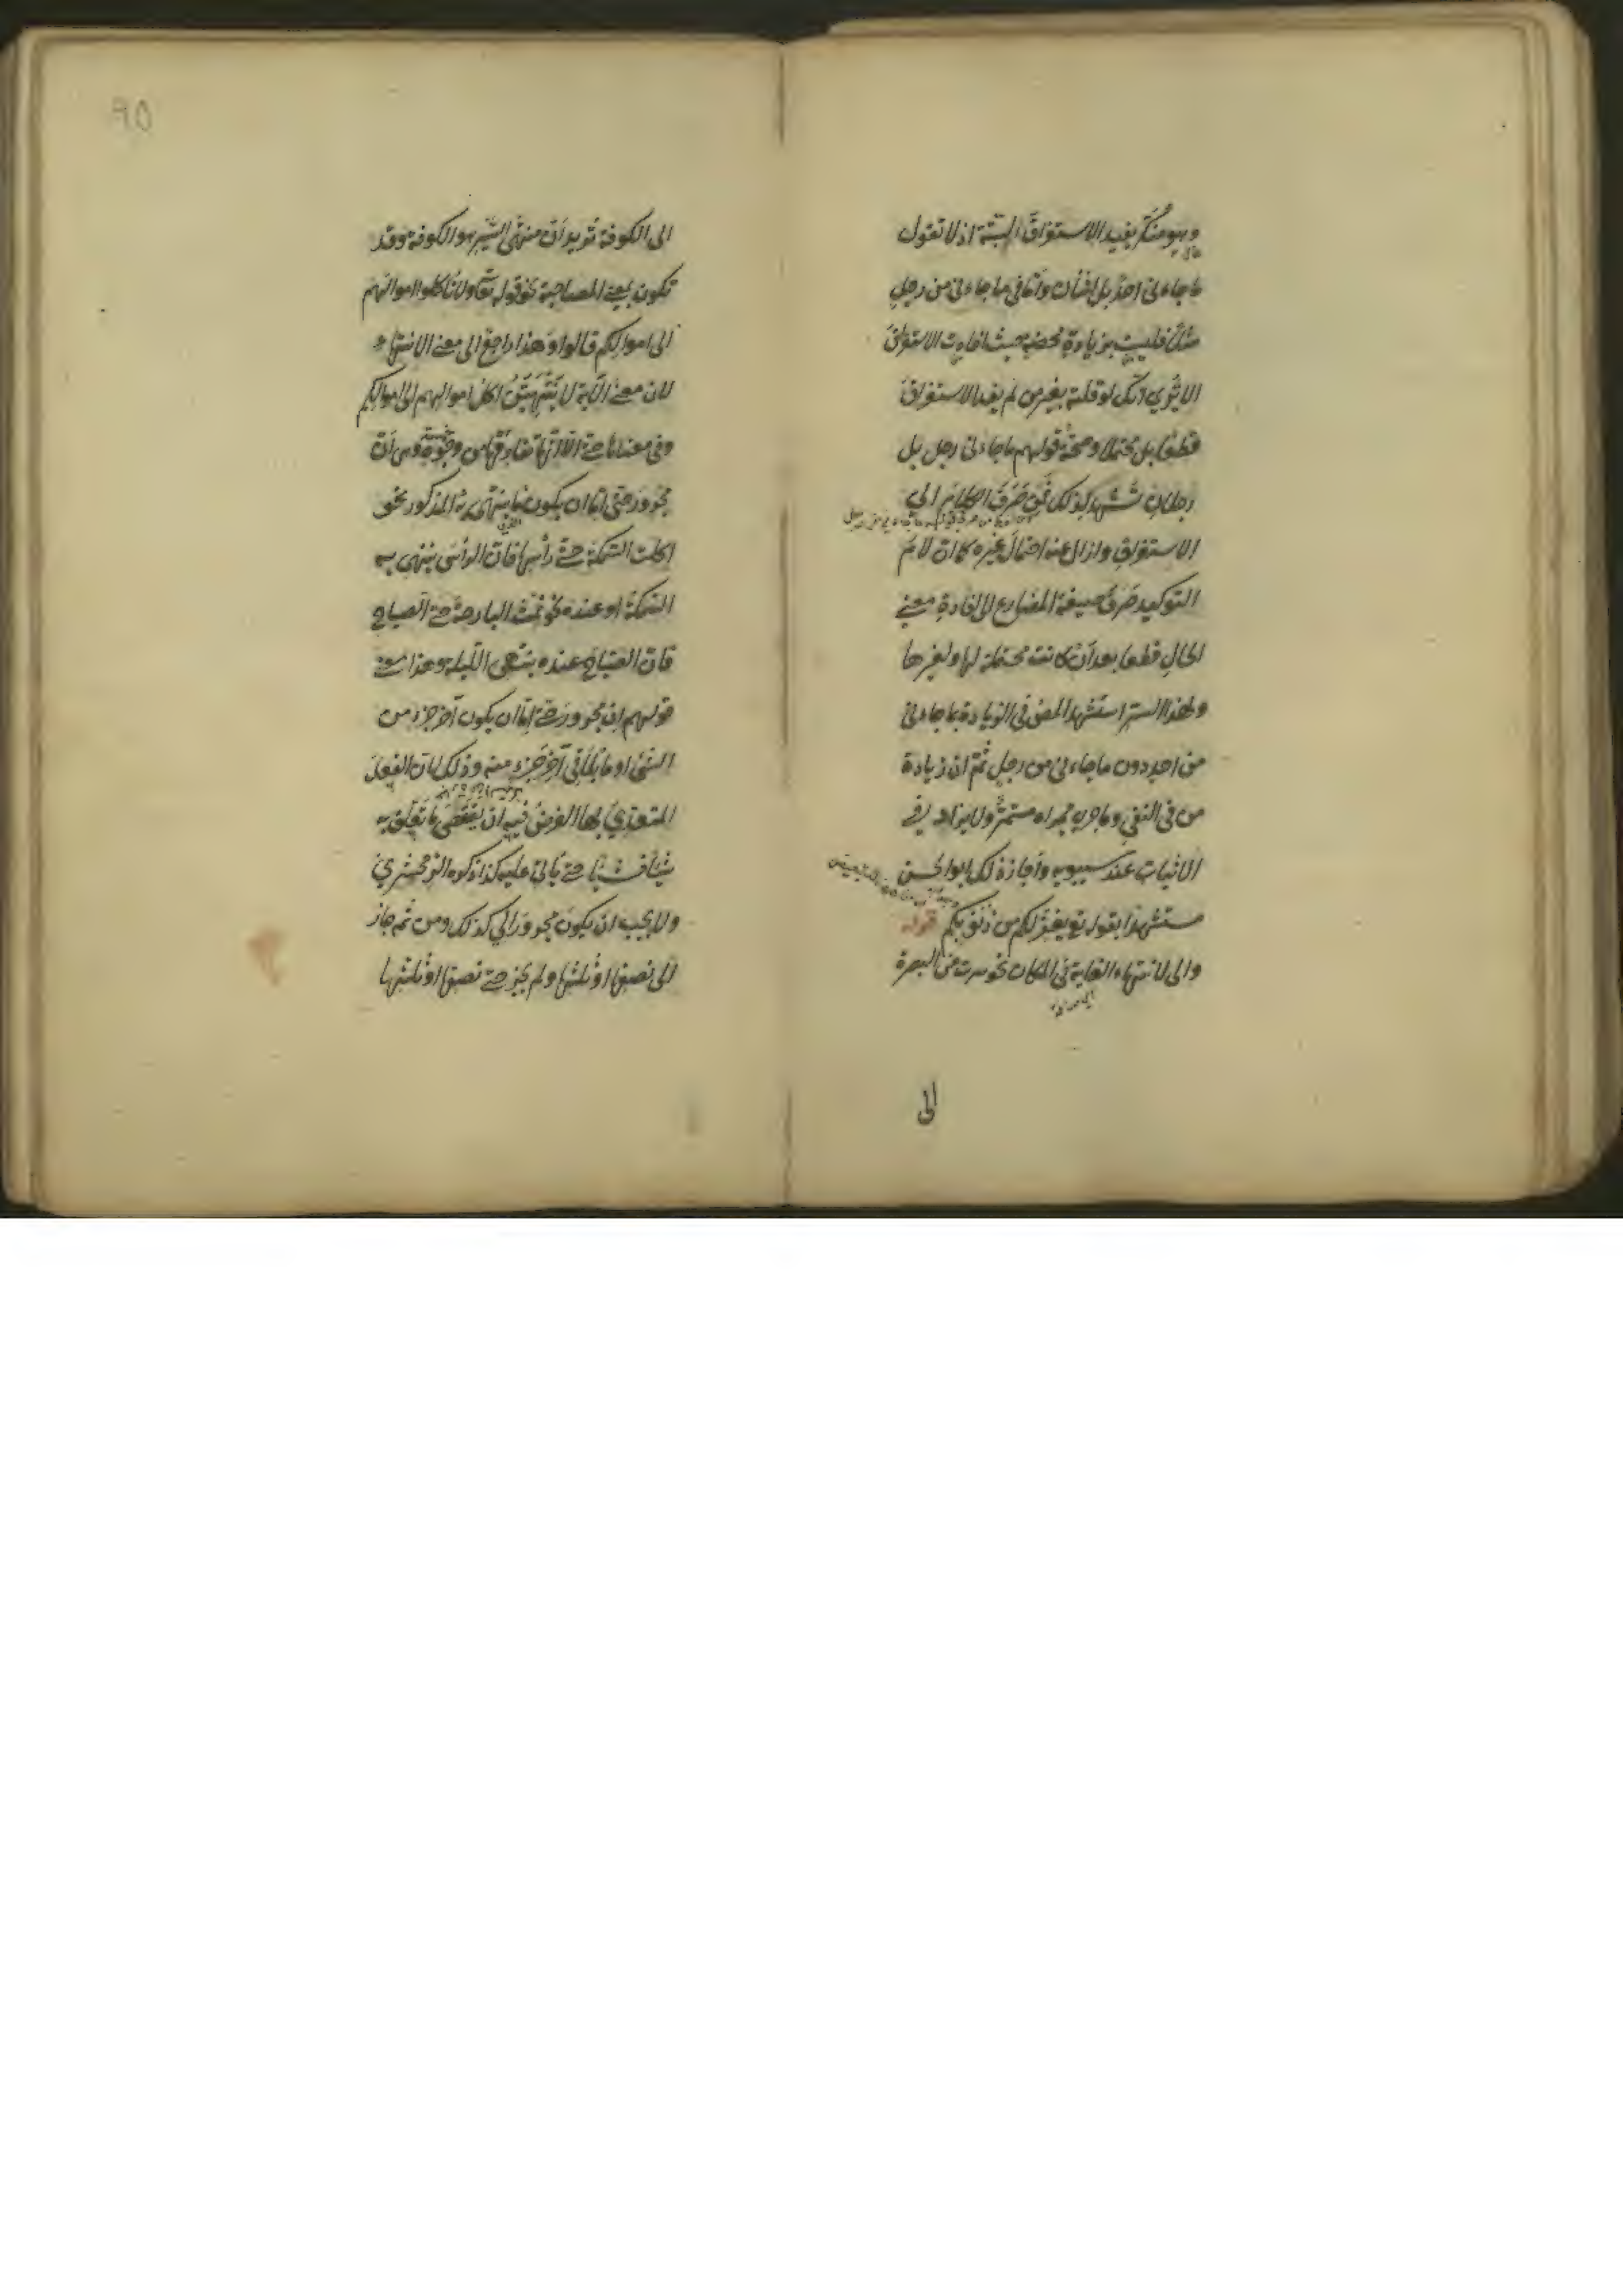 وهو منكر يفيد الاستغراق البتة اذ لا تقول
ما جاءنى احد بل اثنان وامّا فى ما جاءنى من رجل
مثلا فليست بزيادة محضة حيث افادت الاستغراق
الا ترى انك لو قلته بغير من لم يفد الاستغراق
قطعا بل محتملا وصحة قولهم ما جاءنى رجل بل
رجلان تشهد لذلك فمن صرف الكلام الى
الاستغراق وازال عنه احتمال غيره كما ان لام
التوكيد صرف صيغة المضارع الى افادة معنى
الحال قطعا بعد ان كانت محتملة لها ولغيرها
ولهذا السر استشهد المص فى الزيادة بما جاءنى
من احد دون ما جاءنى من رجل ثم ان زيادة
من فى النفى وما جرى مجراه مستمر ولا يزاد فى
الاثبات عند سيبويه واجاز ذلك ابو الحسن
مستشهدا بقوله تع يغفر لكم من ذنوبكم قوله
والى لانتهاء الغاية فى المكان نحو سرت من البصرة
الى
٩٥
الى الكوفة تريد ان منتهى السير هو الكوفة وقد
تكون بمعنى المصاحبة نحو قوله تعا ولا تاكلوا اموالهم
الى اموالكم قالوا وهذا راجع الى معنى الانتهاء
لان معنى الآية لا ينتهين اكل اموالهم الى اموالكم
وفى معناها حتى الّا انها تفارقها من وجوه وهى ان
مجرور حتى امّا ان يكون ما ينتهى به المذكور نحو
اكلت السمكة حتى رأسها فان الرأس ينتهى به
السمكة او عنده نحو نمت البارحة حتى الصباح
فان الصباح عنده ينتهى الليلة وهذا معنى
قولهم ان مجرور حتى امّا ان يكون آخر جزء من
الشئ او ما يلاقى آخر جزء منه وذلك لان الفعل
المتعدى بها الغرض فيه ان ينقضى ما تعلق به
شيئا فشيئا حتى ياتى عليه كذا ذكره الزمخشرى
ولا يجب ان يكون مجرور الى كذلك ومن ثم جاز
الى نصفها او ثلثها ولم يجز حتى نصفها او ثلثها